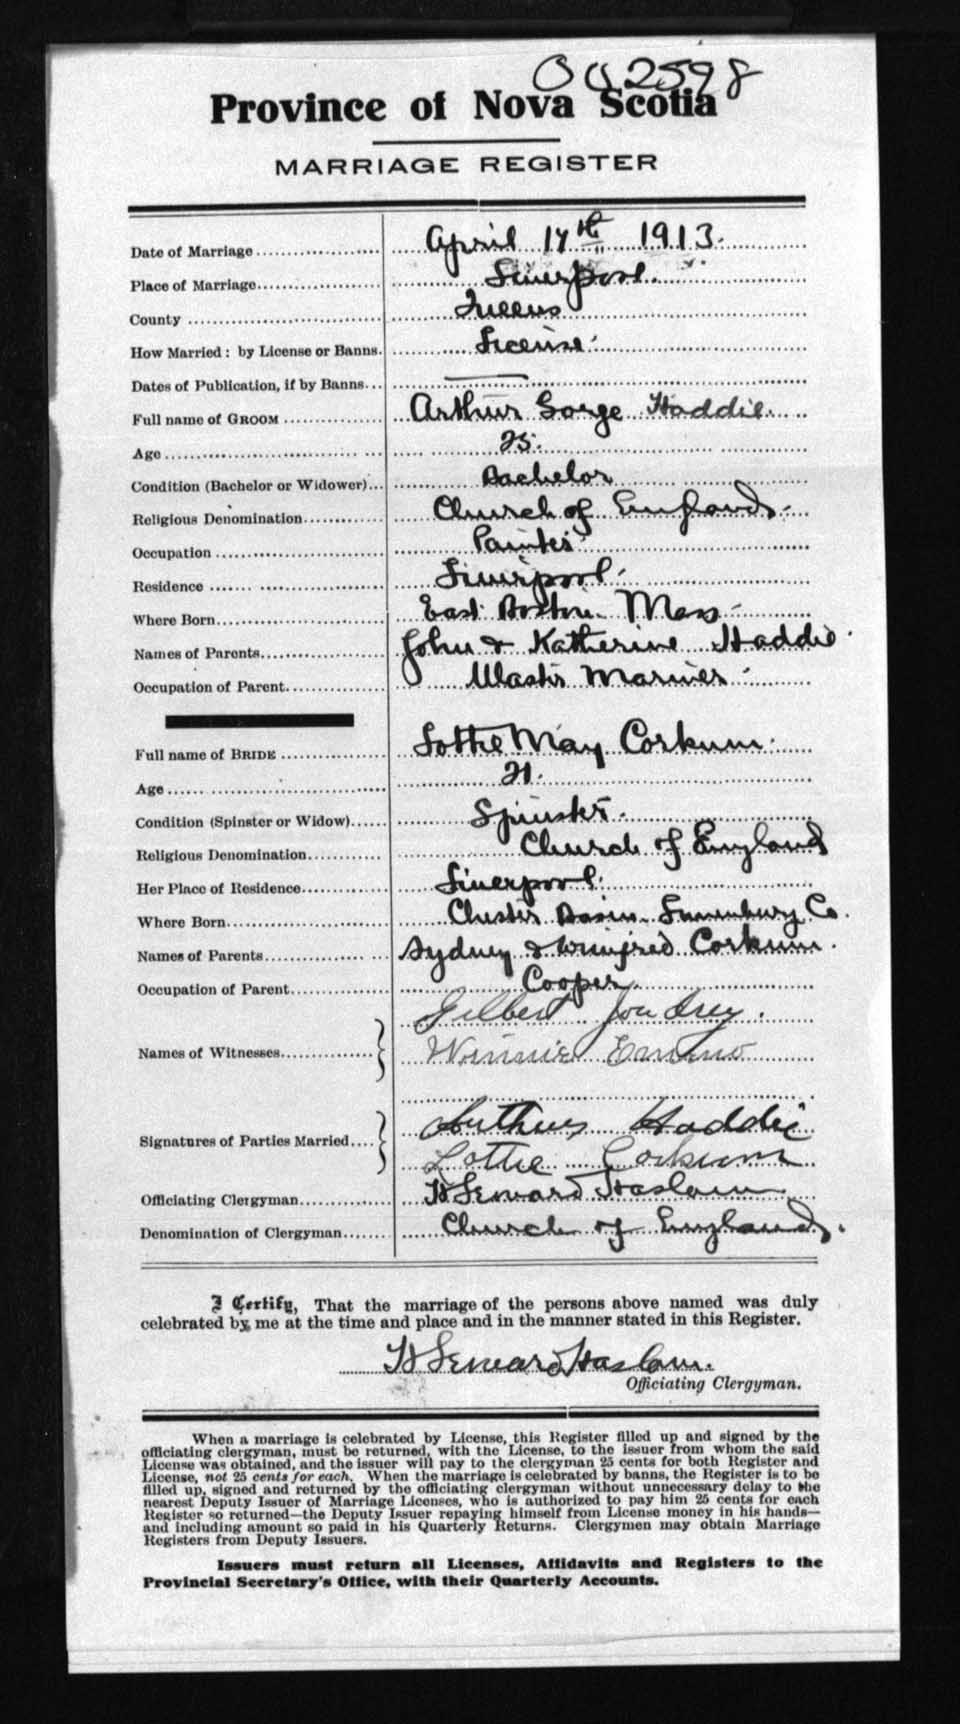 002598
Province of Nova Scotia
MARRIAGE REGISTER
Date of Marriage April 17th 1913.
Place of Marriage Liverpool.
County Queens
How Married: by License or Banns. License.
Dates of Publication, if by Banns
Full name of GROOM Arthur Gorge Haddie
Age 25.
Condition (Bachelor or Widower) Bachelor
Religious Denomination Church of England.
Occupation Painter
Residence Liverpool.
Where Born East Boston Mass
Names of Parents John & Katherine Haddie.
Occupation of Parent Master Mariner
Full name of BRIDE Lottie May Corkum.
Age 21.
Condition (Spinster or Widow) Spinster.
Religious Denomination Church of England
Her Place of Residence Liverpool.
Where Born Chester Basin Lunenburg Co.
Names of Parents Sydney & Winifred Corkum.
Occupation of Parent Cooper.
Gilbert Joudrey.
Names of Witnesses Winnie
Signatures of Parties Married Arthur Haddie
Lottie Corkum
Officiating Clergyman H Seward Haslam
Denomination of Clergyman Church of England.
I Certify, That the marriage of the persons above named was duly
celebrated by me at the time and place and in the manner stated in this Register.
H Seward Haslam.
Officiating Clergyman.
When a marriage is celebrated by License, this Register filled up and signed by the
officiating clergyman, must be returned, with the License, to the issuer from whom the said
License was obtained, and the issuer will pay to the clergyman 25 cents for both Register and
License, not 25 cents for each. When the marriage is celebrated by banns, the Register is to be
filled up, signed and returned by the officiating clergyman without unnecessary delay to the
nearest Deputy Issuer of Marriage Licenses, who is authorized to pay him 25 cents for each
Register so returned—the Deputy Issuer repaying himself from License money in his hands—
and including amount so paid in his Quarterly Returns. Clergymen may obtain Marriage
Registers from Deputy Issuers.
Issuers must return all Licenses, Affidavits and Registers to the
Provincial Secretary's Office, with their Quarterly Accounts.